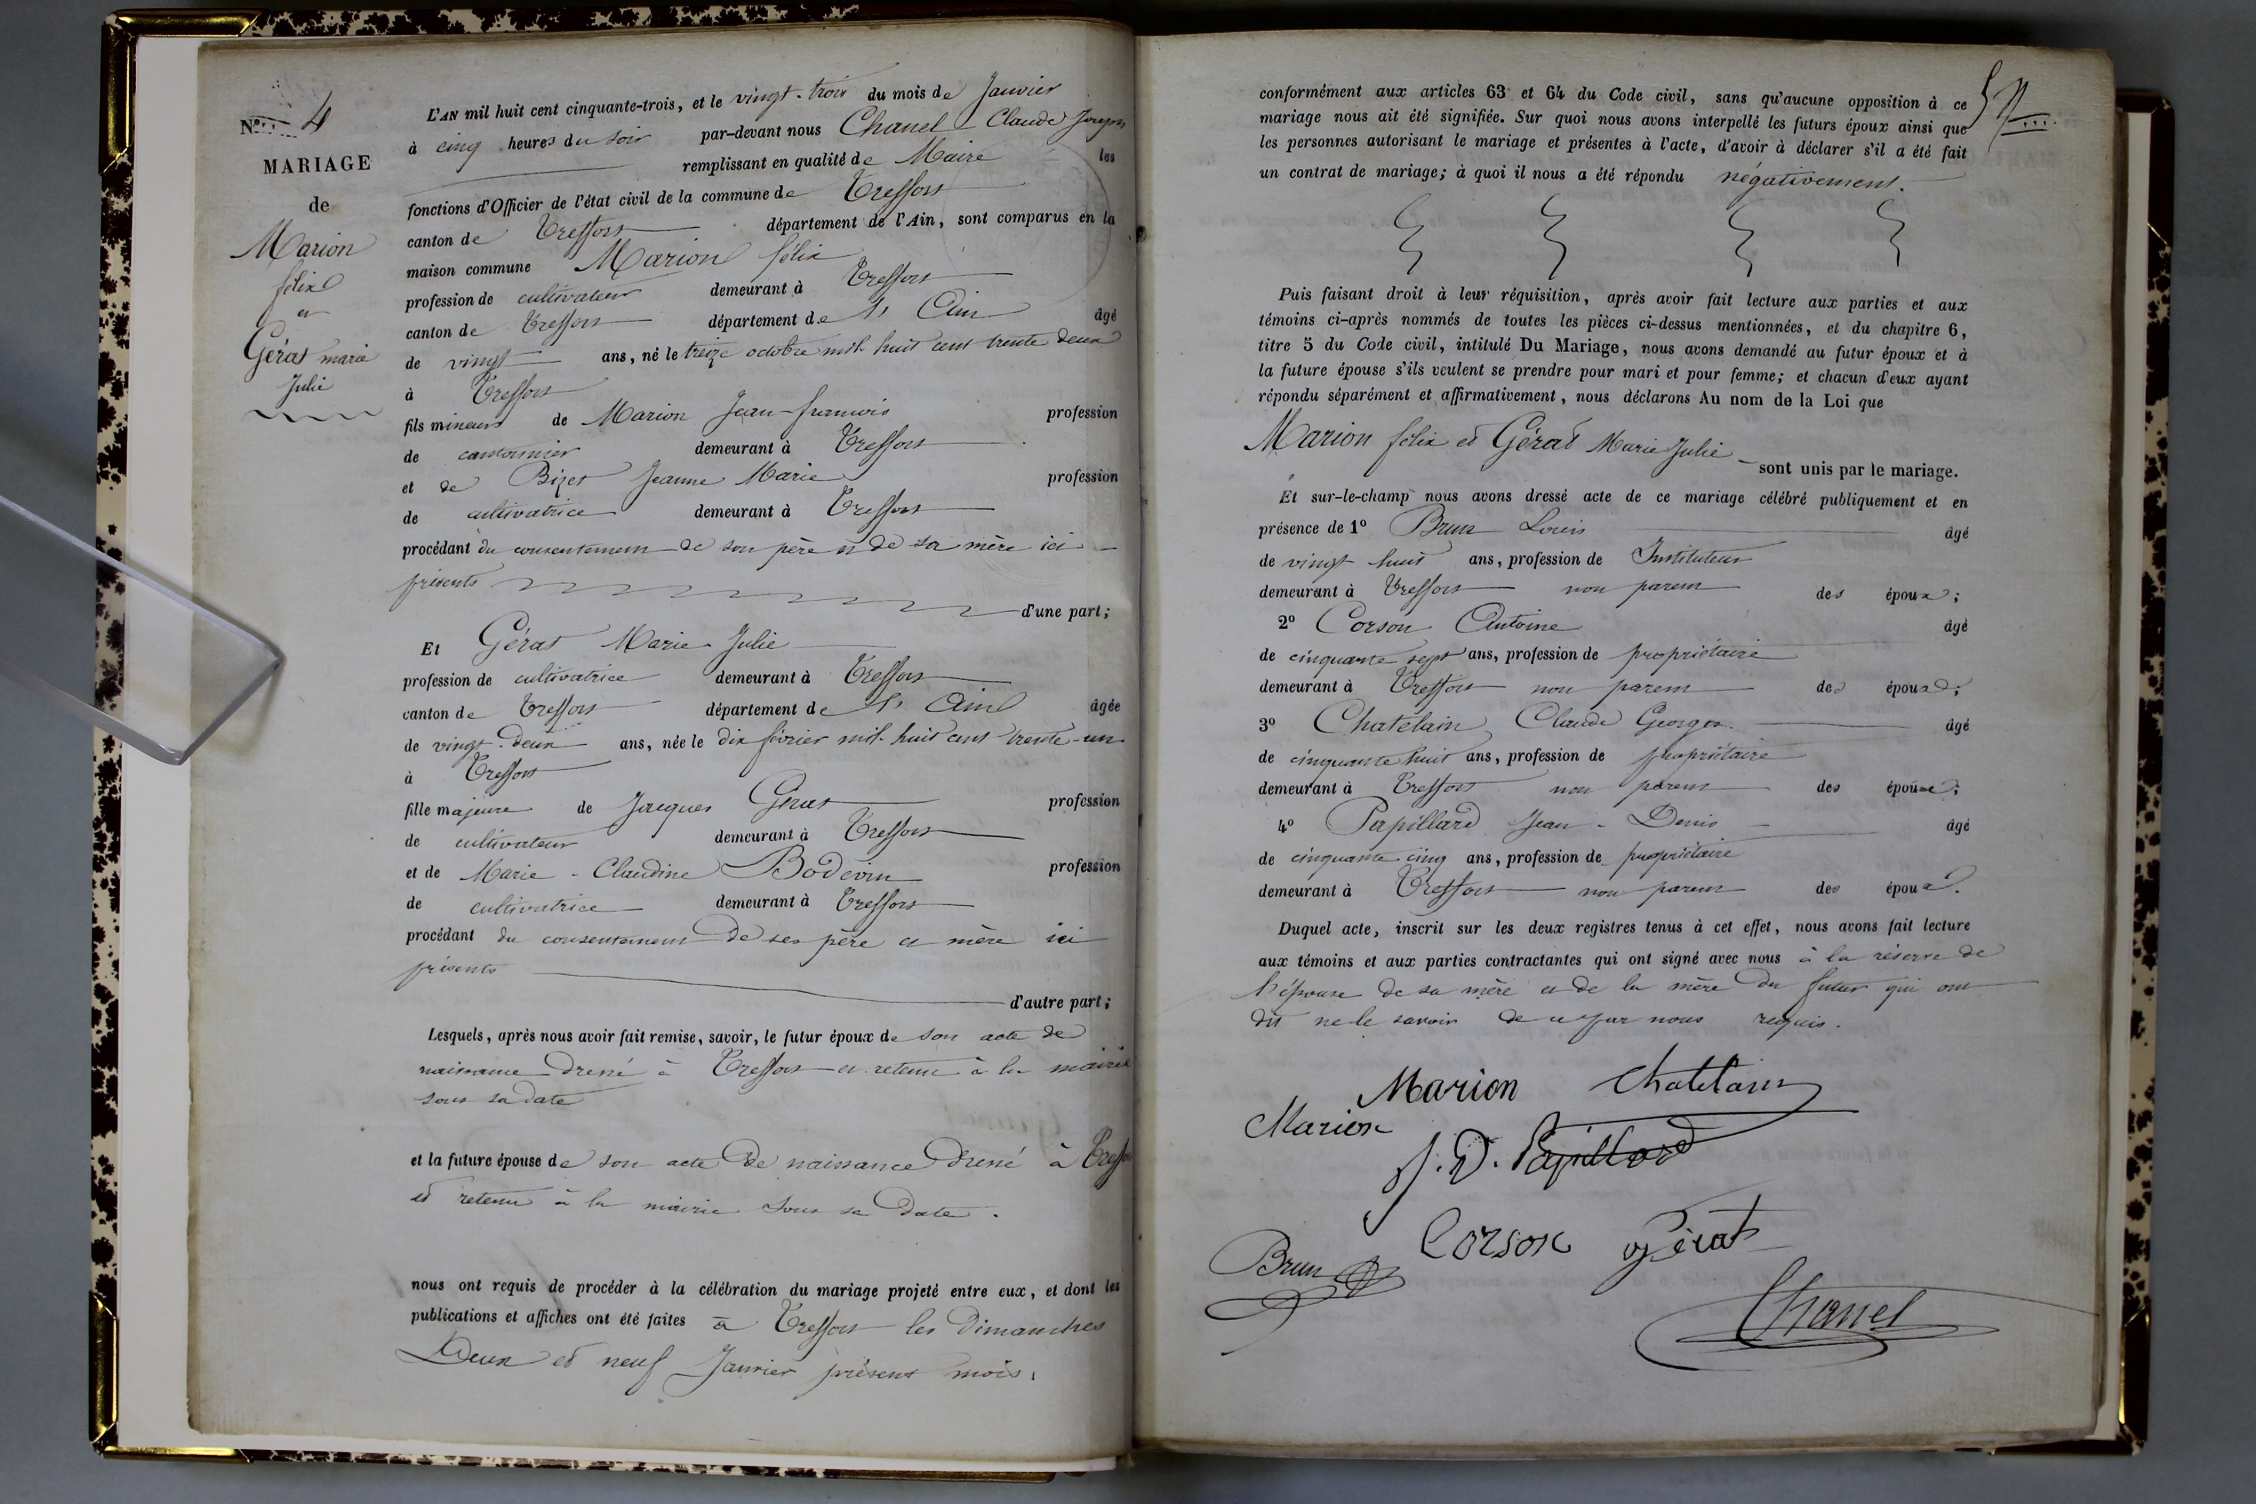 N° 4
MARIAGE
de
Marion
félix
et
Gérat marie
Julie
L'AN mil huit cent cinquante-trois, et le vingt-trois du mois de Janvier
à cinq heures du soir par-devant nous Chanel Claude Joseph
remplissant en qualité de Maire les
fonctions d'Officier de l'état civil de la commune de Treffort
canton de Treffort département de l'Ain, sont comparus en la
maison commune Marion félix
profession de cultivateur demeurant à Treffort
canton de Treffort département de l'Ain âgé
de vingt ans, né le treize octobre mil huit cent trente deux
à Treffort
fils mineur de Marion Jean-francois profession
de cantonnier demeurant à Treffort
et de Bizet Jeanne Marie profession
de cultivatrice demeurant à Treffort
procédant du consentement de son père et de sa mère ici
présents
d'une part;
Et Gérat Marie Julie
profession de cultivatrice demeurant à Treffort
canton de Treffort département de l'Ain âgée
de vingt-deux ans, née le dix février mil huit cent trente-un
à Treffort
fille majeure de Jacques Gérat profession
de cultivateur demeurant à Treffort
et de Marie-Claudine Bodévin profession
de cultivatrice demeurant à Treffort
procédant du consentement de ses père et mère ici
présents
d'autre part;
Lesquels, après nous avoir fait remise, savoir, le futur époux de son acte de
naissance dressé à Treffort et retenu à la mairie
sous sa date
et la future épouse de son acte de naissance dressé à Treffort
et retenu à la mairie sous sa date.
nous ont requis de procéder à la célébration du mariage projeté entre eux, et dont les
publications et affiches ont été faites à Treffort les dimanches
Deux et neuf Janvier présent mois.
conformément aux articles 63 et 64 du Code civil, sans qu'aucune opposition à ce
mariage nous ait été signifiée. Sur quoi nous avons interpellé les futurs époux ainsi que
les personnes autorisant le mariage et présentes à l'acte, d'avoir à déclarer s'il a été fait
un contrat de mariage; à quoi il nous a été répondu négativement.
Puis faisant droit à leur réquisition, après avoir fait lecture aux parties et aux
témoins ci-après nommés de toutes les pièces ci-dessus mentionnées, et du chapitre 6,
titre 5 du Code civil, intitulé Du Mariage, nous avons demandé au futur époux et à
la future épouse s'ils veulent se prendre pour mari et pour femme; et chacun d'eux ayant
répondu séparément et affirmativement, nous déclarons Au nom de la Loi que
Marion félix et Gérat Marie Julie
sont unis par le mariage.
Et sur-le-champ nous avons dressé acte de ce mariage célébré publiquement et en
présence de 1° Brun Louis âgé
de vingt huit ans, profession de Instituteur
demeurant à Treffort non parent des époux;
2° Corson Antoine âgé
de cinquante sept ans, profession de propriétaire
demeurant à Treffort non parent des époux;
3° Chatelain Claude Georges âgé
de cinquante huit ans, profession de propriétaire
demeurant à Treffort non parent des époux;
4° Papillard Jean-Denis âgé
de cinquante cinq ans, profession de propriétaire
demeurant à Treffort non parent des époux.
Duquel acte, inscrit sur les deux registres tenus à cet effet, nous avons fait lecture
aux témoins et aux parties contractantes qui ont signé avec nous à la réserve de
l'épouse de sa mère et de la mère du futur qui ont
dit ne le savoir de ce par nous requis.
Marion Chatelain
Marion
J. D. Papillard
Corson Gérat
Brun
Chanel